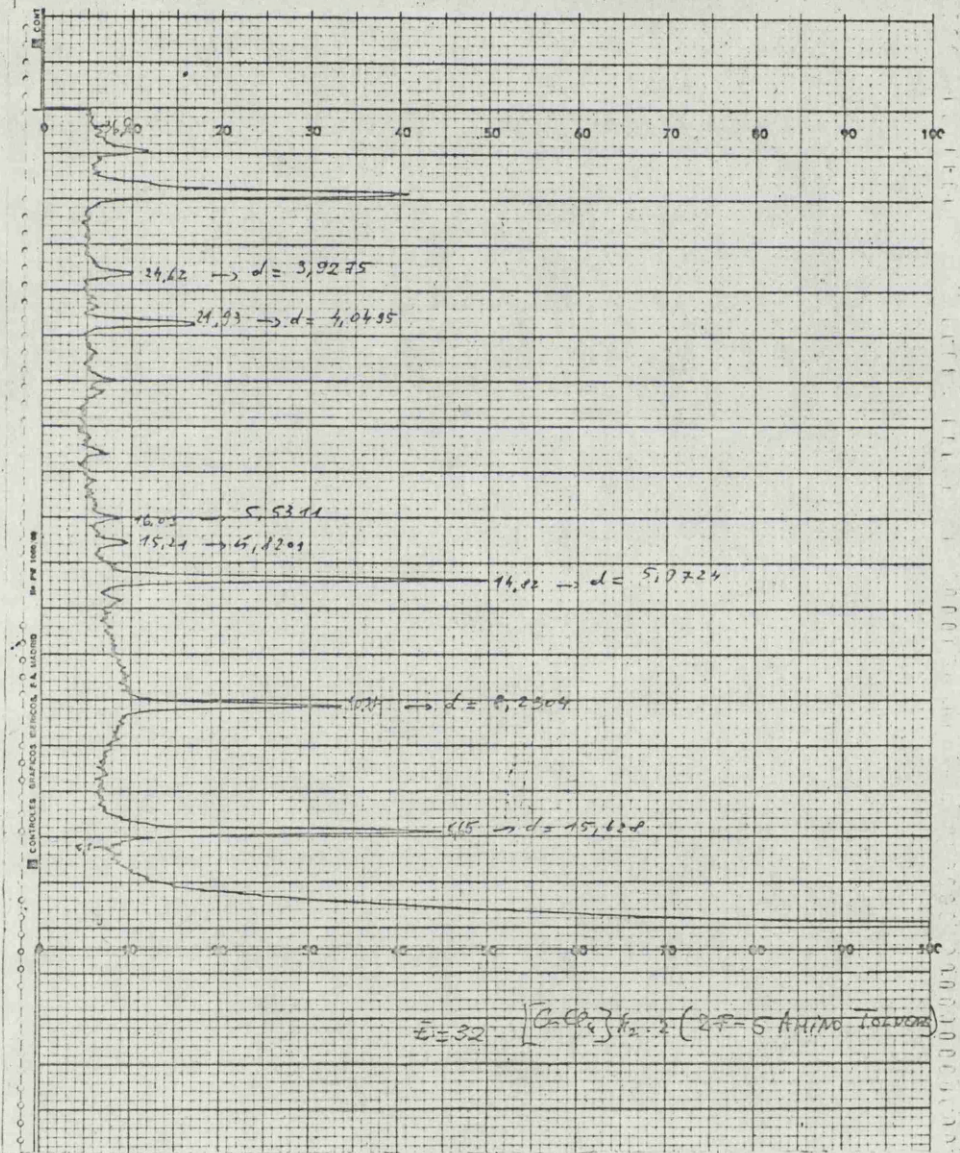 CONT
0 10 20 30 40 50 60 70 80 90 100
24,62 → d = 3,9275
21,93 → d = 4,0495
16,03 → 5,5311
15,21 → 5,8201
14,82 → d = 5,9724
→ d = 8,2304
5,65 → d = 15,628
CONTROLES GRAFICOS IBERICOS, S.A. MADRID
0 10 20 30 40 50 60 70 80 90 100
E=32 - [CuCl₄]H₂·2(2F-5 AMINO TOLUENO)